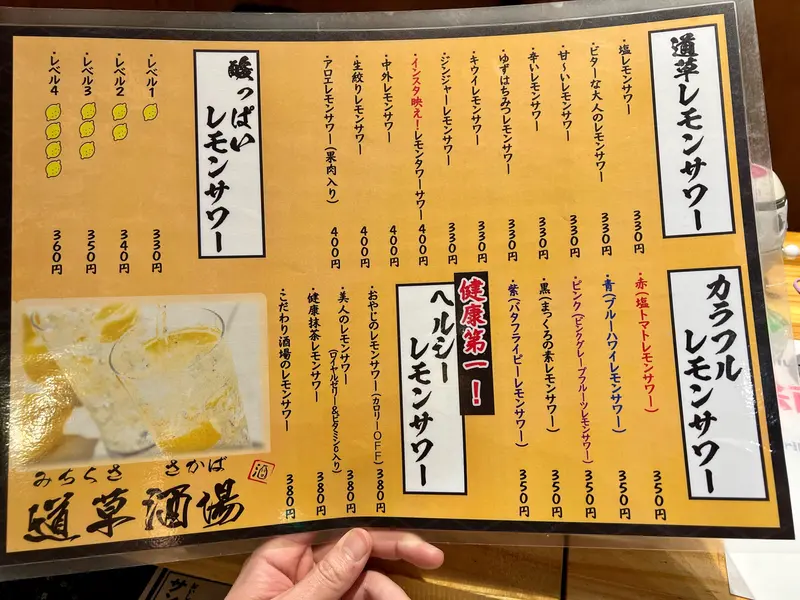 道草レモンサワー
・塩レモンサワー 330円
・ビターな大人のレモンサワー 330円
・甘〜いレモンサワー 330円
・辛いレモンサワー 330円
・ゆずはちみつレモンサワー 330円
・キウイレモンサワー 330円
・ジンジャーレモンサワー 330円
・インスタ映えーレモンタワーサワー 400円
・中外レモンサワー 400円
・生絞りレモンサワー 400円
・アロエレモンサワー(果肉入り) 400円
酸っぱい
レモンサワー
・レベル1 330円
・レベル2 340円
・レベル3 350円
・レベル4 360円
カラフル
レモンサワー
・赤(塩トマトレモンサワー) 350円
・青(ブルーハワイレモンサワー) 350円
・ピンク(ピンクグレープフルーツレモンサワー) 350円
・黒(まっくろの素レモンサワー) 350円
・紫(バタフライピーレモンサワー) 350円
健康第一!
ヘルシー
レモンサワー
・おやじのレモンサワー(カロリーOFF) 380円
・美人のレモンサワー(ロイヤルゼリー&ビタミンC入り) 380円
・健康抹茶レモンサワー 380円
・こだわり酒場のレモンサワー 380円
みちくさ さかば
道草酒場
酒